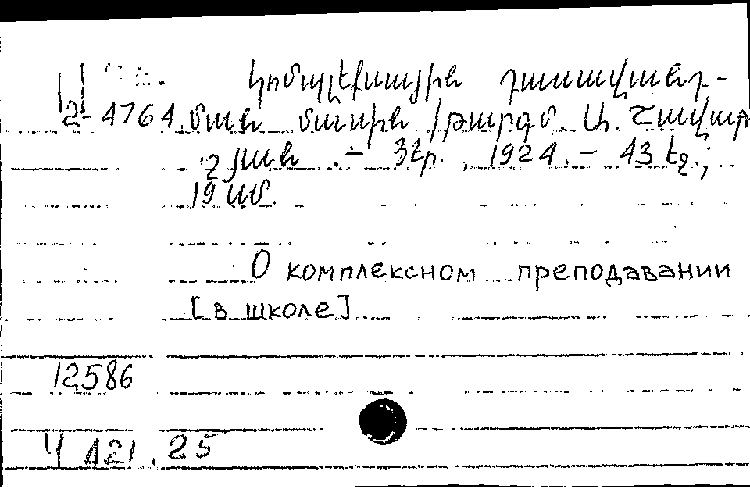 Կոմպլեքսային դասավանդ-
2-4764 ման մասին /թարգմ. Ա. Շավար
շյան .- Յեր., 1924.- 43 էջ.;
19 սմ.
О комплексном преподавании
[в школе]
12586
Ч 121.25